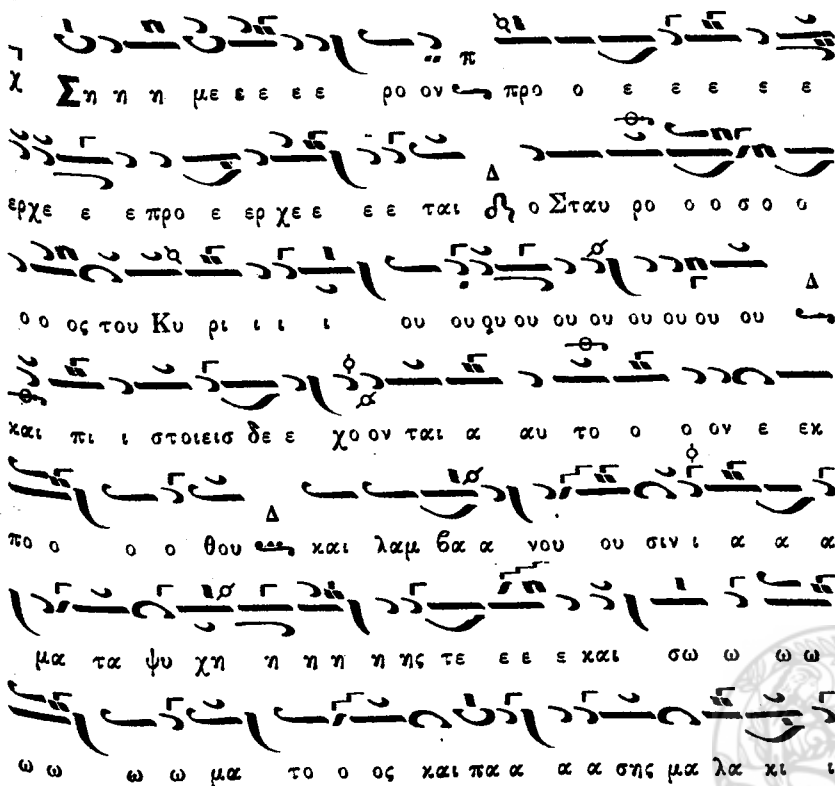 π
χ Ση η η με ε ε ε ε ρο ον προ ο ε ε ε ε ε
Δ
ερχε ε ε προ ε ερ χε ε ε ε ται ο Σταυ ρο ο ο σ ο ο
Δ
ο ο ος του Κυ ρι ι ι ι ου ου ου ου ου ου ου ου ου ου
και πι ι στοιεισ δε ε χο ον ται α αυ το ο ο ον ε εκ
Δ
πο ο ο ο θου και λαμ βα α νου ου σιν ι α α α
μα τα ψυ χη η η η η ης τε ε ε ε και σω ω ω ω
ω ω ω ω μα το ο ος και πα α α α σης μα λα κι ι